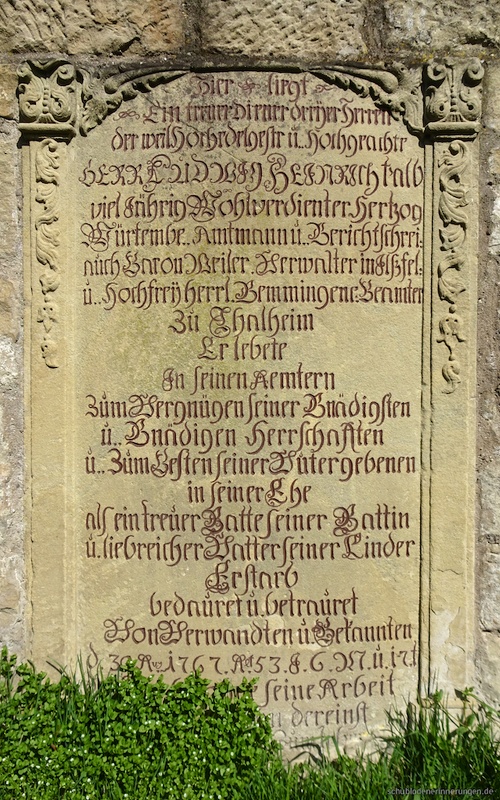 Hier liegt
Ein treuer Diener dreÿer Herren
der weil. Hochedelgestr ü.. Hochgeachte
HERR LUDWIG HEINRICH kalb
viel Jährig Wohlverdienter Hertzog
Würtembe.. Amtmann ü.. Gerichtschrei:
auch Baron Weiler. Verwalter in
ü.. Hochfreÿ herrl. Gemmingenc: Beamter
Zu Thalheim
Er lebete
In seinen Aemtern
Züm Vergnügen seiner Gnädigsten
ü.. Gnädigen Herrschafften
ü.. Züm Besten seiner Üntergebenen
in seiner Ehe
als ein treuer Gatte seiner Gattin
ü. liebreicher Vatter seiner Kinder
Er starb
bedaüret ü. betraüret
Von Verwandten ü. Bekannten
d. 30. 1767. 53. J. 6. M. ü. 17. t
seine Arbeit
dereinst
schubladenerinnerungen.de